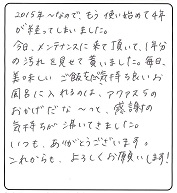 2015年～なので、もう使い始めて4年
が経ってしまいました。
今日、メンテナンスに来て頂いて、1年分
の汚れを見せて貰いました。毎日、
美味しいご飯を、気持ち良いお
風呂に入れるのは、アクアス5の
おかげだな～って、感謝の
気持ちが湧いてきました。
いつも、ありがとうございます。
これからも、よろしくお願いします！